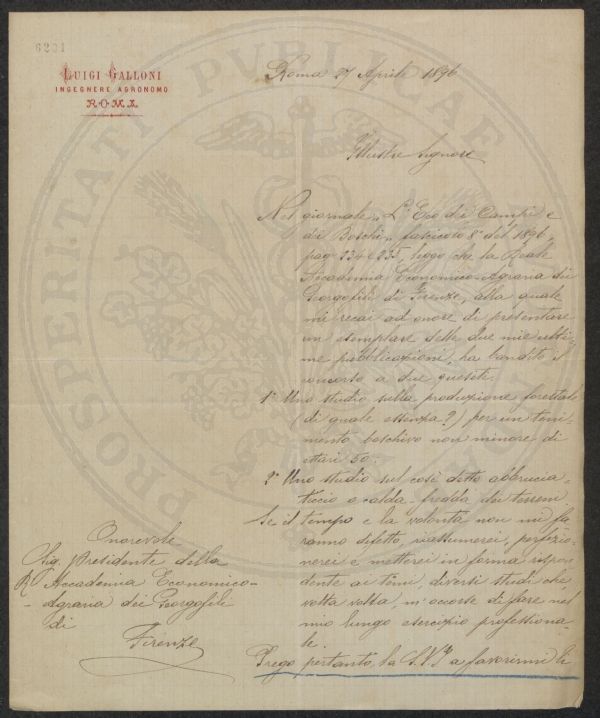 6231
LUIGI GALLONI
INGEGNERE AGRONOMO
ROMA
Roma 27 Aprile 1896
Illustre Signore
Nel giornale „ L'Eco dei Campi e
dei Boschi „ fascicolo 8° del 1896,
pag. 234 e 235, leggo che la Reale
Accademia Economico-Agraria dei
Georgofili di Firenze, alla quale
mi recai ad onore di presentare
un esemplare delle due mie ulti-
me pubblicazioni, ha bandito il
concorso a due quesiti.
1° Uno studio sulla produzione forestale
(di quale essenza?) per un teni-
mento boschivo non minore di
ettari 50.
2° Uno studio sul così detto abbrucia-
ticcio o calda-fredda dei terreni.
Se il tempo e la volontà non mi fa-
ranno difetto, riassumerei, perfezio-
nerei e metterei in forma rispon-
dente ai temi, diversi studi che
volta volta, m'occorse di fare nel
mio lungo esercizio professiona-
le.
Prego pertanto la S.V. a favorirmi li
Onorevole
Sig. Presidente della
R. Accademia Economico-
-Agraria dei Georgofili
di
Firenze
PROSPERITATI PUBLICAE